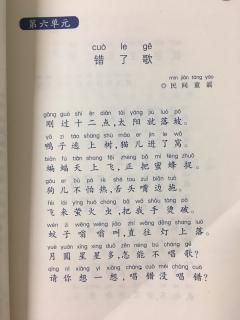 第六单元
cuò le gē
错了歌
mín jiān tóng yáo
◎民间童谣
gāng guò shí èr diǎn tài yáng jiù luò pō
刚过十二点，太阳就落坡。
yā zi táo shàng shù māo er jìn le wō
鸭子逃上树，猫儿进了窝。
biān fú tiān shàng fēi zhèng bǎ mì fēng zhuō
蝙蝠天上飞，正把蜜蜂捉。
gǒu er bú pà rè shé tou zuǐ biān tuō
狗儿不怕热，舌头嘴边拖。
fēi lái yíng huǒ chóng bǎ wǒ shǒu tàng pò
飞来萤火虫，把我手烫破。
wén zi wēng wēng jiào zhí wǎng dēng shang luò
蚊子嗡嗡叫，直往灯上落。
yuè yuán xīng xing duō zěn néng bú chàng gē
月圆星星多，怎能不唱歌？
qǐng nǐ xiǎng yi xiǎng chàng cuò méi chàng cuò
请你想一想，唱错没唱错？